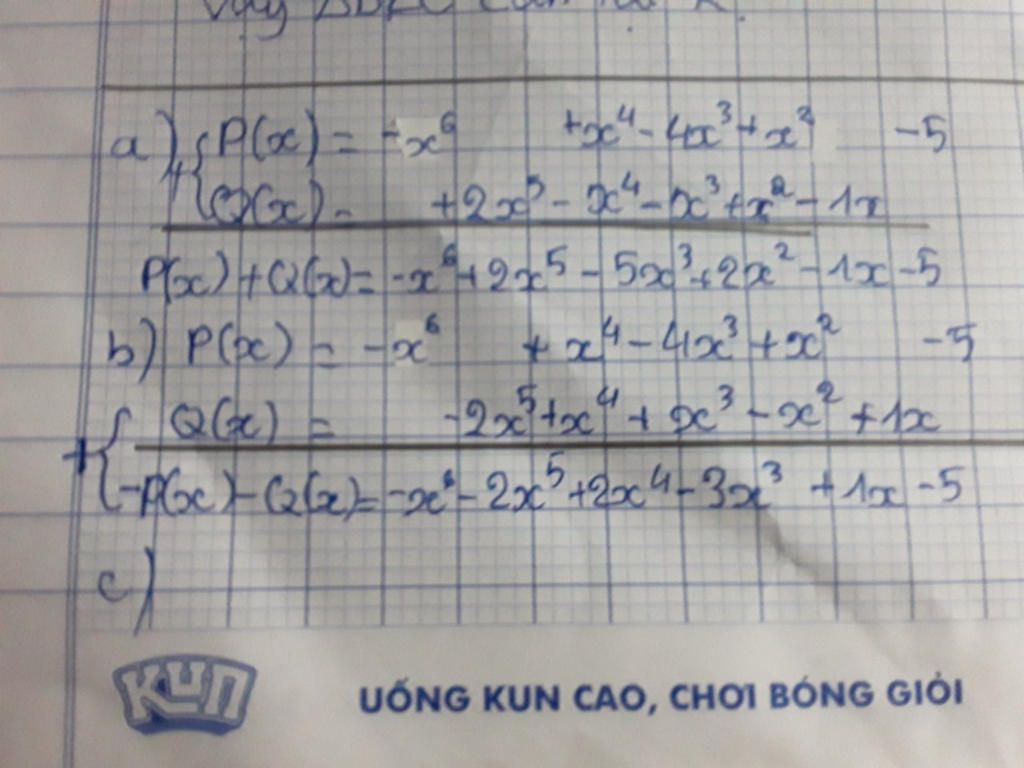 Vậy
a) P(x) = -x⁶ +x⁴ - 4x³ + x² -5
+{ Q(x) = +2x⁵ - x⁴ - x³ + x² - 1x
P(x) + Q(x) = -x⁶ + 2x⁵ - 5x³ + 2x² - 1x - 5
b) P(x) = -x⁶ + x⁴ - 4x³ + x² -5
+{ Q(x) = -2x⁵ + x⁴ + x³ - x² + 1x
-P(x) - Q(x) = -x⁶ - 2x⁵ + 2x⁴ - 3x³ + 1x - 5
c)
KUN
UỐNG KUN CAO, CHƠI BÓNG GIỎI